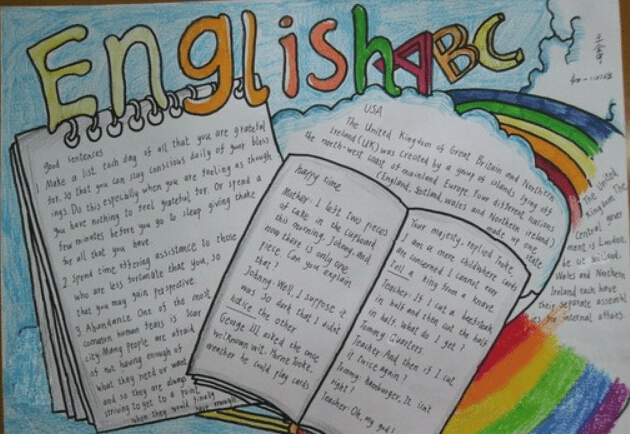 English ABC
good sentences
1. Make a list each day of all that you are grateful
for. so that you can stay conscious daily of your bless
ings. Do this especially when you are feeling as though
you have nothing to feel grateful for. Or spend a
few minutes before you go to sleep giving thanks
for all that you have
2. Spend time offering assistance to those
who are less fortunate that you, so
that you may gain perspective.
3. Abundance One of the most
common human fears is scar
city Many people are afraid
of not having enough of
what they need or want
and so they are always
striving to get to a point
when they would finally
have enough
USA
The United Kingdom of Great Britain and Northern
Ireland (UK) was created by a group of islands lying off
the north-west coast of mainland Europe Four different nations
(England, Scotland, wales and Northern ireland)
made up one
state
happy time
Mother: I left two pieces
of cake in the cupboard
this morning, Johnny, and
now there is only one
piece. Can you explain
that?
Johnny: Well, I suppose it
was so dark that I didn't
notice the other
George III, asked the once
wellknown wit, Horne Tooke,
weather he could play cards
Your majesty, replied Tooke,
I am a mere child where cards
are concerned I cannot even
tell a king from a knave
Teacher: If I cut a beefsteak
in half and then cut the half
in half. What do I get?
Tommy: Quarters
Teacher: And then if I cut
it twice again?
Tommy: Hamburger, It isn't
right?
Teacher: Oh, my god!
The United
Kingdom The
Central gover
ment is London,
Wales and Northern
Ireland each have
their separate assembl
ies for internal affairs.